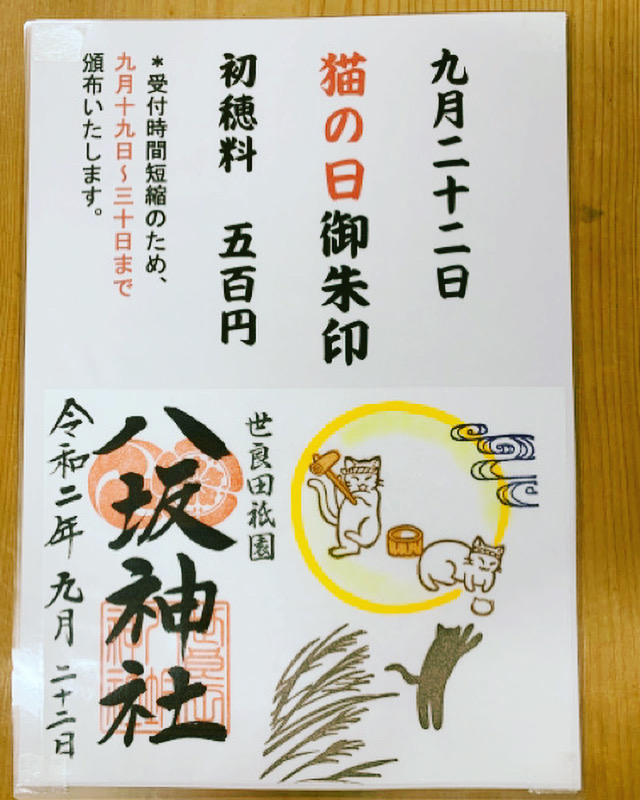 九月二十二日
猫の日御朱印
初穂料 五百円
*受付時間短縮のため、
九月十九日～三十日まで
頒布いたします。
世良田祇園
八坂神社
令和二年 九月 二十二日